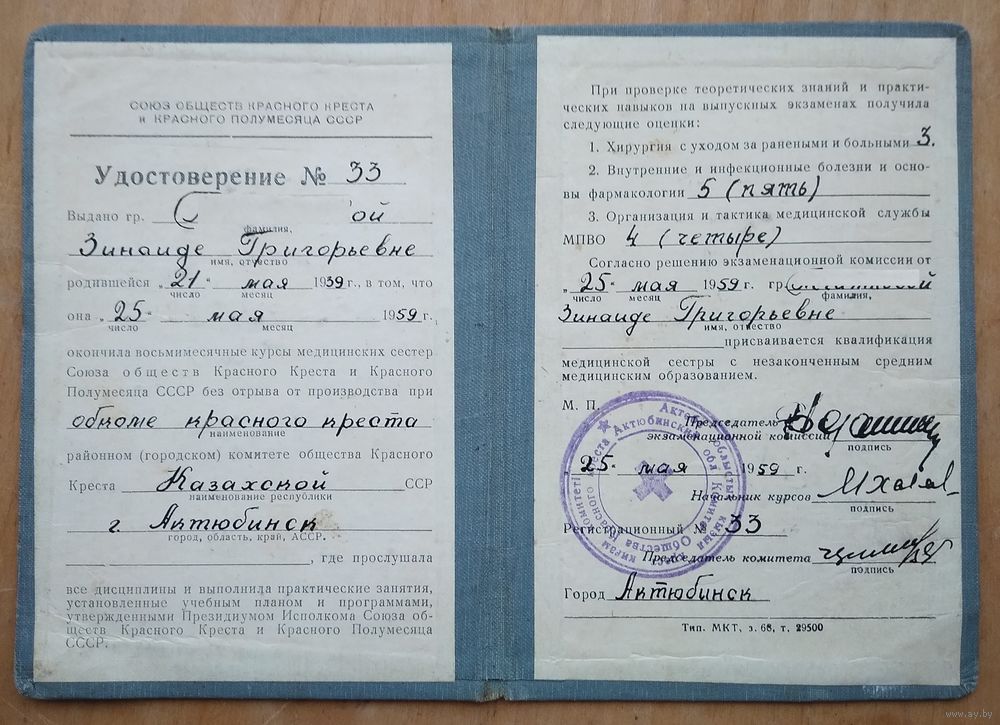 СОЮЗ ОБЩЕСТВ КРАСНОГО КРЕСТА
и КРАСНОГО ПОЛУМЕСЯЦА СССР
Удостоверение № 33
Выдано гр. ой
фамилия,
Зинаиде Григорьевне
имя, отчество
родившейся „21“ мая 1939 г., в том, что
число месяц
она „25“ мая 1959 г.
число месяц
окончила восьмимесячные курсы медицинских сестер
Союза обществ Красного Креста и Красного
Полумесяца СССР без отрыва от производства при
обкоме красного креста
наименование
районном (городском) комитете общества Красного
Креста Казахской ССР
наименование республики
г. Актюбинск
город, область, край, АССР.
, где прослушала
все дисциплины и выполнила практические занятия,
установленные учебным планом и программами,
утвержденными Президиумом Исполкома Союза об-
ществ Красного Креста и Красного Полумесяца
СССР.
При проверке теоретических знаний и практи-
ческих навыков на выпускных экзаменах получила
следующие оценки:
1. Хирургия с уходом за ранеными и больными 3.
2. Внутренние и инфекционные болезни и осно-
вы фармакологии 5 (пять)
3. Организация и тактика медицинской службы
МПВО 4 (четыре)
Согласно решению экзаменационной комиссии от
„25“ мая 1959 г. гр. ой
число месяц фамилия,
Зинаиде Григорьевне
имя, отчество
присваивается квалификация
медицинской сестры с незаконченным средним
медицинским образованием.
М. П.
Председатель
экзаменационной комиссии
подпись
„25“ мая 1959 г.
Начальник курсов
подпись
Регистрационный № 33
Председатель комитета
подпись
Город Актюбинск
Тип. МКТ, з. 68, т. 29500
www.ay.by